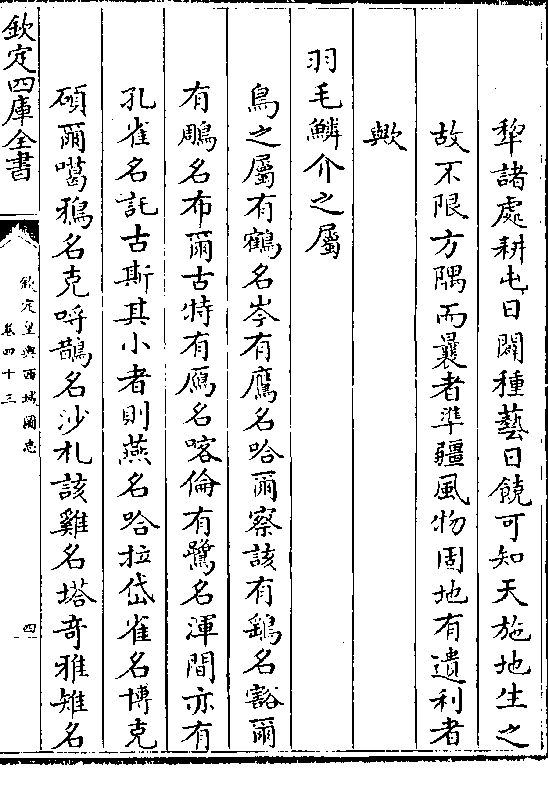 犂諸處耕屯日闢種藝日饒可知天施地生之
故不限方隅而曩者準疆風物固地有遺利者
歟
羽毛鱗介之屬
鳥之屬有鶴名岑有鷹名哈爾察該有鷂名豁爾
有鵰名布爾古特有鴈名喀倫有鷺名渾間亦有
孔雀名託古斯其小者則燕名哈拉岱雀名博克
碩爾噶鴉名克哷鵲名沙札該雞名塔竒雅雉名
欽定四庫全書
欽定皇輿西域圖志
卷四十三
四